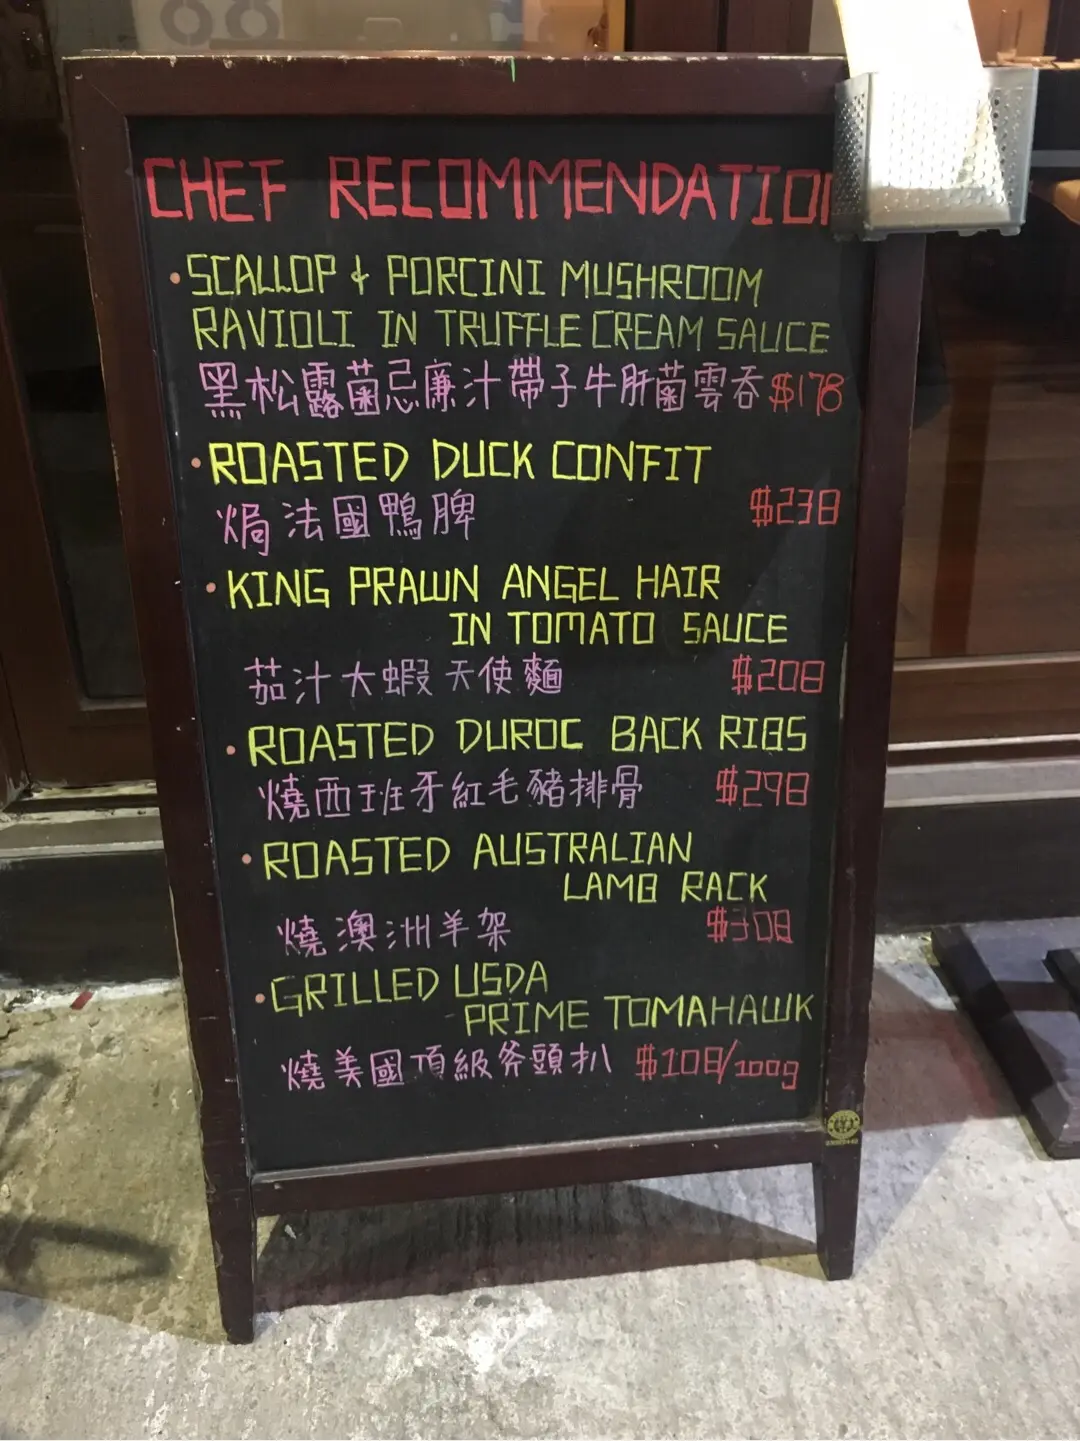 CHEF RECOMMENDATION
• SCALLOP & PORCINI MUSHROOM
RAVIOLI IN TRUFFLE CREAM SAUCE
黑松露菌忌廉汁帶子牛肝菌雲吞 $178
• ROASTED DUCK CONFIT
焗法國鴨脾 $238
• KING PRAWN ANGEL HAIR
IN TOMATO SAUCE
茄汁大蝦天使麵 $208
• ROASTED DUROC BACK RIBS
燒西班牙紅毛豬排骨 $298
• ROASTED AUSTRALIAN
LAMB RACK
燒澳洲羊架 $308
• GRILLED USDA
PRIME TOMAHAWK
燒美國頂級斧頭扒 $108/100g